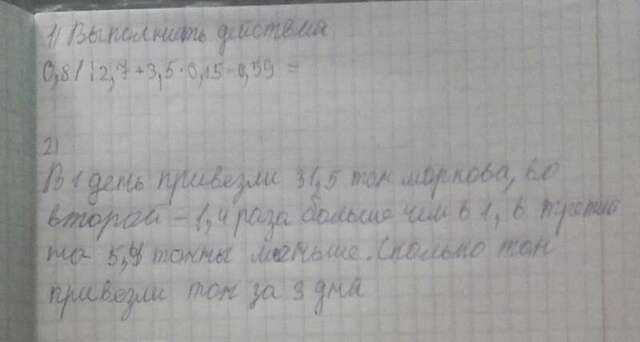 1) Выполнить действия
0,81:2,7+3,5·0,15-0,59 =
2)
В 1 день привезли 31,5 тон моркова, во
второй - 1,4 раза больше чем в 1, в третий
на 5,4 тонны меньше. Сколько тон
привезли тон за 3 дня